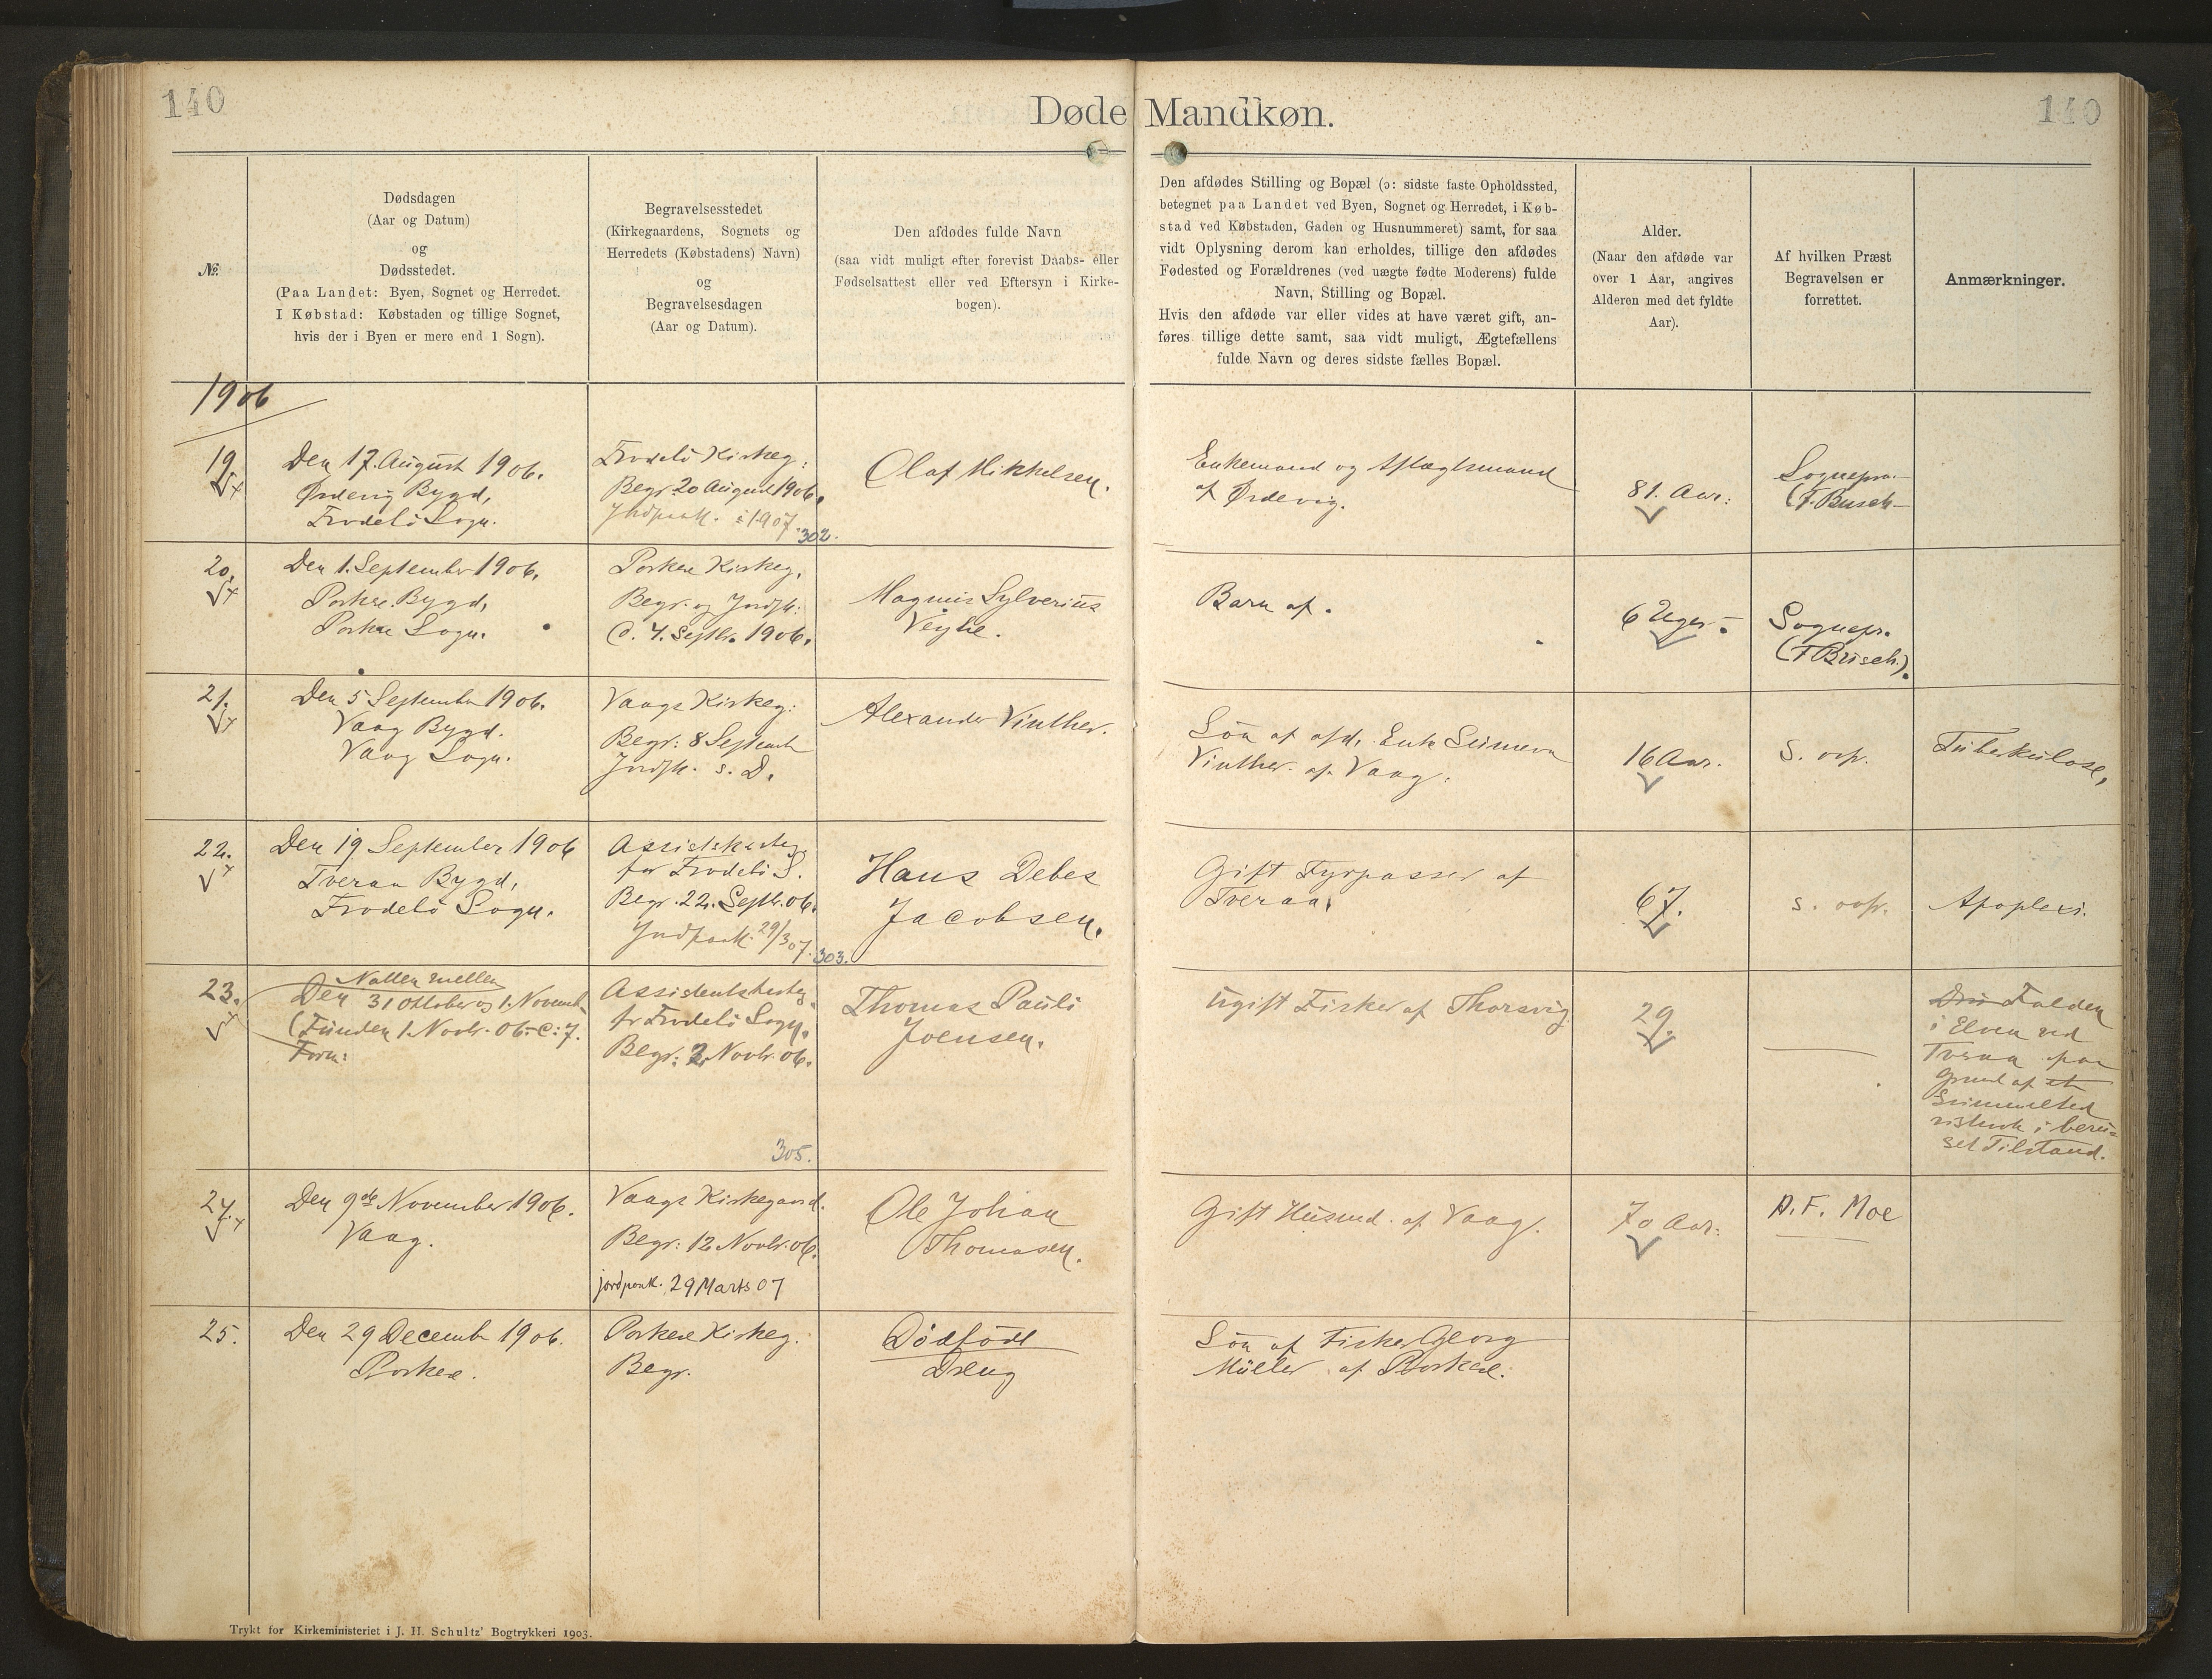 140
Døde Mandkøn.
140
№
Dødsdagen
(Aar og Datum)
og
Dødsstedet.
(Paa Landet: Byen, Sognet og Herredet.
I Købstad: Købstaden og tillige Sognet,
hvis der i Byen er mere end 1 Sogn).
Begravelsesstedet
(Kirkegaardens, Sognets og
Herredets (Købstadens) Navn)
og
Begravelsesdagen
(Aar og Datum).
Den afdødes fulde Navn
(saa vidt muligt efter forevist Daabs- eller
Fødselsattest eller ved Eftersyn i Kirke-
bogen).
Den afdødes Stilling og Bopæl (ɔ: sidste faste Opholdssted,
betegnet paa Landet ved Byen, Sognet og Herredet, i Køb-
stad ved Købstaden, Gaden og Husnummeret) samt, for saa
vidt Oplysning derom kan erholdes, tillige den afdødes
Fødested og Forældrenes (ved uægte fødte Moderens) fulde
Navn, Stilling og Bopæl.
Hvis den afdøde var eller vides at have været gift, an-
føres tillige dette samt, saa vidt muligt, Ægtefællens
fulde Navn og deres sidste fælles Bopæl.
Alder.
(Naar den afdøde var
over 1 Aar, angives
Alderen med det fyldte
Aar).
Af hvilken Præst
Begravelsen er
forrettet.
Anmærkninger.
1906
19.
Den 17. August 1906.
Ørdevig Bygd,
Frodebö Sogn.
Frodebö Kirkeg:
Begr. 20 August 1906.
Jordpaak. i 1907.
302.
Olaf Mikkelsen.
Enkemand og Aftægtsmand
af Ørdevig.
81. Aar:
Sognepr.
(F. Busch
20.
Den 1. September 1906.
Porkere Bygd,
Porkere Sogn.
Porkere Kirkeg,
Begr. og Jordfk:
d. 4. Septbr. 1906.
Magnus Sylverius
Veyhe.
Barn af.
6 Uger.
Sognepr.
(F Busch).
21.
Den 5 September 1906.
Vaag Bygd.
Vaag Sogn.
Vaags Kirkeg:
Begr: 8 Septemb
Jordfk. s. D.
Alexander Vinther.
Sön af afd. Enke Sunneva
Vinther af Vaag.
16 Aar.
S. ovf.
Tuberkulose,
22.
Den 19 September 1906
Tveraa Bygd,
Frodebö Sogn.
Assistskirkeg.
for Frodebö S.
Begr. 22. Septb. 06.
Jordpaak. 29/3 07.
303.
Hans Debes
Jacobsen.
Gift Fyrpasser af
Tveraa.
67.
s. ovfr.
Apoplexi.
23.
Natten mellem
Den 31 Oktober og 1. Novemb.
(Funden 1. Novbr. 06. C: 7.
Form:
Assistentskirkeg.
for Frodebö Sogn.
Begr: 2. Novbr. 06.
305.
Thomas Pauli
Joensen.
Ugift Fisker af Thorsvig
29.
Falden
i Elven ved
Tveraa paa
Grund af et
i beru-
set Tilstand.
24.
Den 9de November 1906.
Vaag.
Vaags Kirkegaard.
Begr: 12. Novbr. 06.
jordpaak. 29 Marts 07
Ole Johan
Thomasen.
Gift Husmd. af Vaag.
70 Aar.
A. F. Moe
25.
Den 29 December 1906.
Porkere.
Porkere Kirkeg.
Begr.
Dödfödt
Dreng
Sön af Fisker Georg
Müller af Porkere.
Trykt for Kirkeministeriet i J. H. Schultz' Bogtrykkeri 1903.